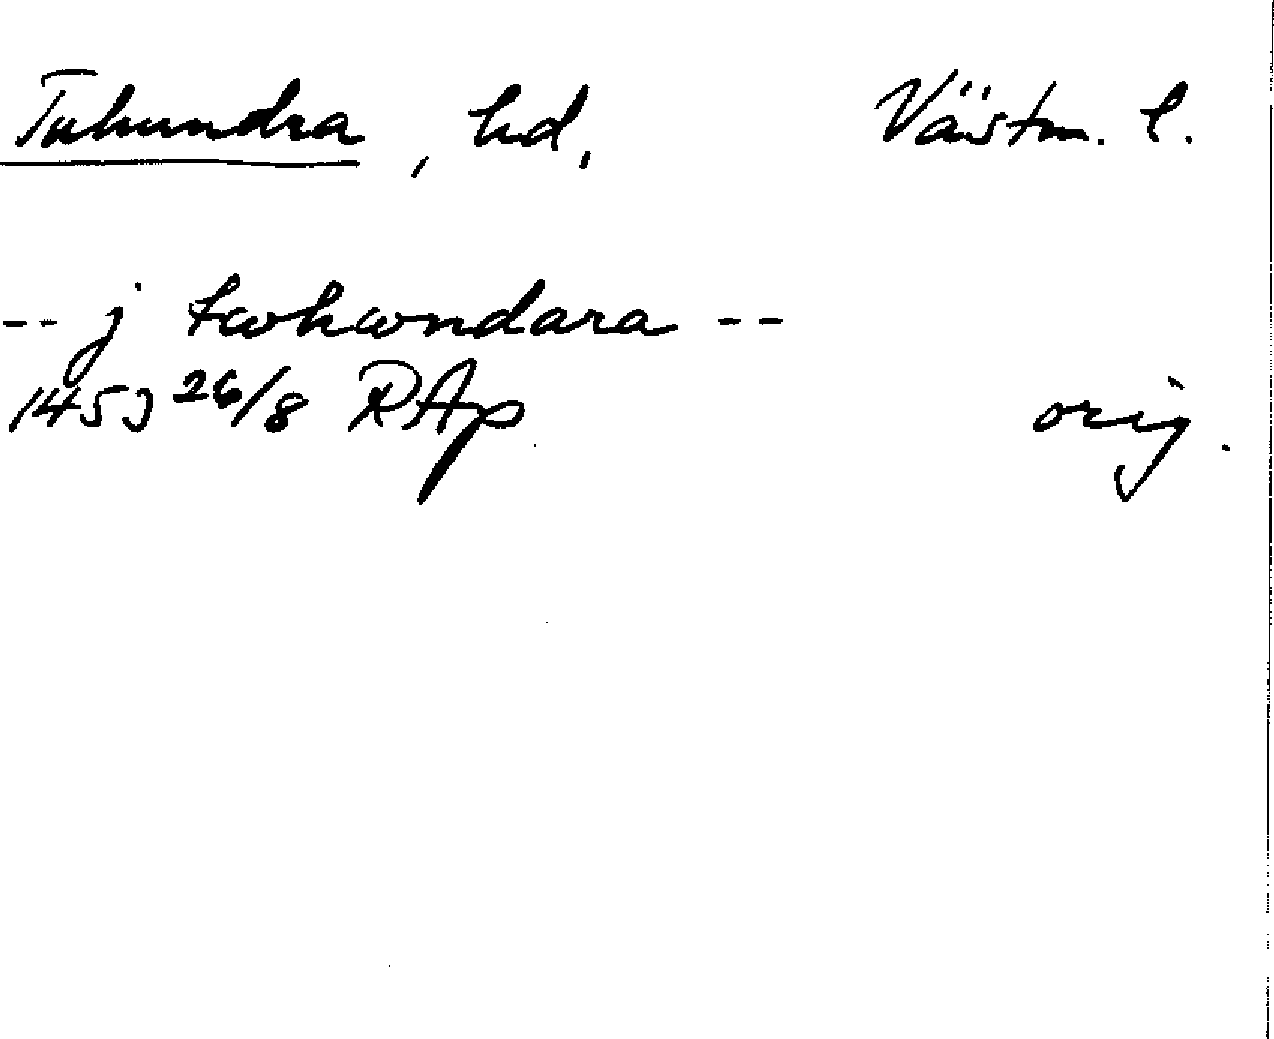 Tuhundra, hd, Västm. l.
-- j twhwndara --
1453 26/8 RAp orig.